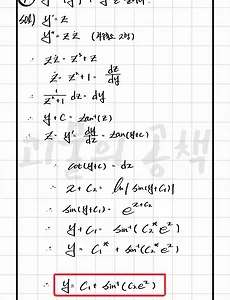 sol) y' = z
y'' = z ż
∴ z ż = z² + z
∴ ż = z² + 1 = dz/dy
∴ 1/(z²+1) dz = dy
∴ y + C = tan⁻¹(z)
∴ z = y' = dy/dx = tan(y+c)
∴ cot(y+c) = dx
∴ x + C₂ = ln|sin(y+C₁)|
∴ sin(y+C₁) = e^(x+C₂)
∴ y + C₁ = sin⁻¹(C₂* eˣ)
∴ y = C₁* + sin⁻¹(C₂* eˣ)
∴ y = C₁ + sin⁻¹(C₂eˣ)